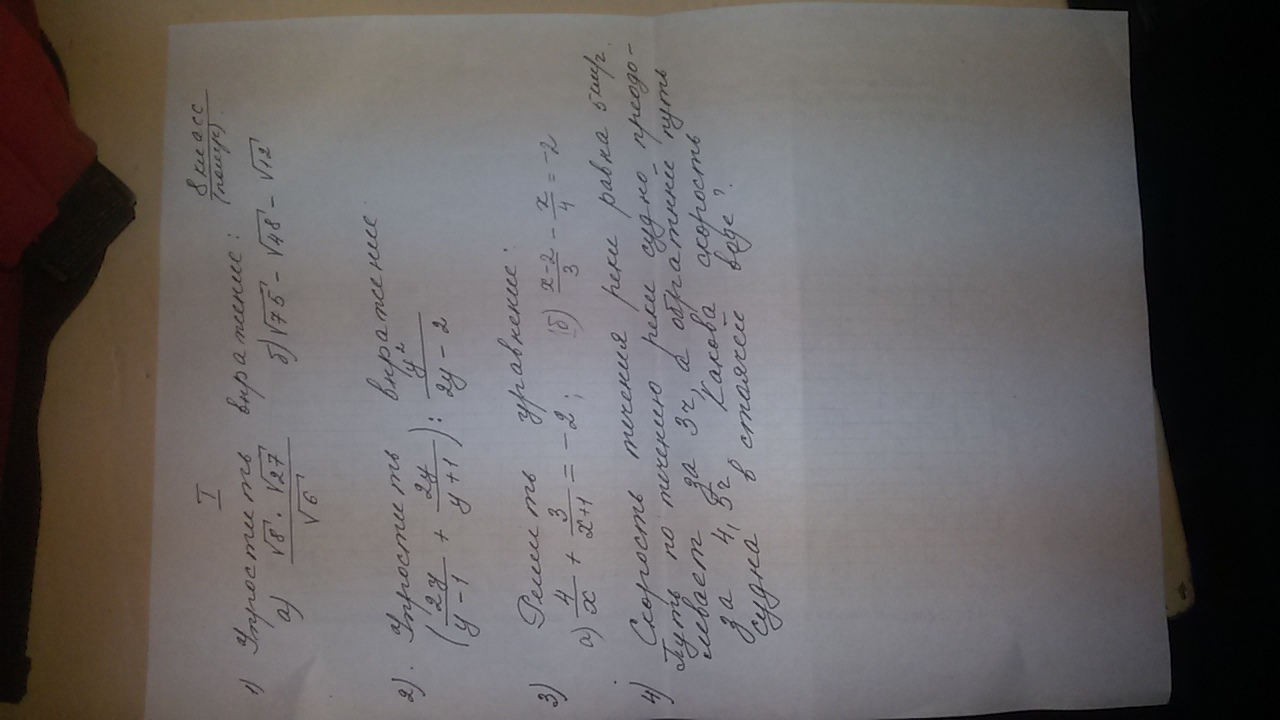 8 класс
I
1) Упростить выражение:
а) √8 · √27 / √6 б) √75 - √48 - √12
2). Упростить выражение:
(2y/(y-1) + 2y/(y+1)) : y²/(2y-2)
3) Решить уравнение:
а) 4/x + 3/(x+1) = -2; (б) (x-2)/3 - x/4 = -2
4) Скорость течения реки равна 5
Путь по течению реки судно преодо-
левает за 3ч, а обратный путь
за 4,5ч. Какова скорость
судна в стоячей воде?